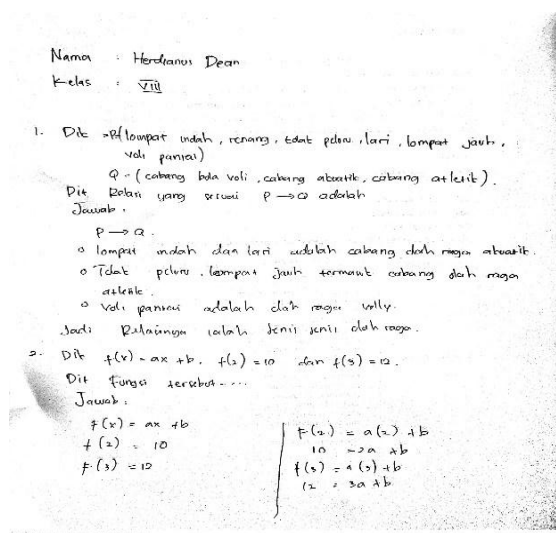 Nama : Herdianus Dean
Kelas : VIII
1. Dik → P (lompat indah, renang, tolak peluru, lari, lompat jauh,
voli pantai)
Q = (cabang bola voli, cabang akuatik, cabang atletik).
Dit Relasi yang sesuai P → Q adalah
Jawab :
P → Q .
o lompat indah dan lari adalah cabang olah raga akuatik.
o Tolak peluru, lompat jauh termasuk cabang olah raga
atletik.
o Voli pantai adalah olah raga volly.
Jadi Relasinya ialah Jenis jenis olah raga.
2. Dik f(x) = ax + b, f(2) = 10 dan f(3) = 12.
Dit Fungsi tersebut ....
Jawab :
f(x) = ax + b
f(2) = 10
f(3) = 12
f(2) = a(2) + b
10 = 2a + b
f(3) = a(3) + b
12 = 3a + b